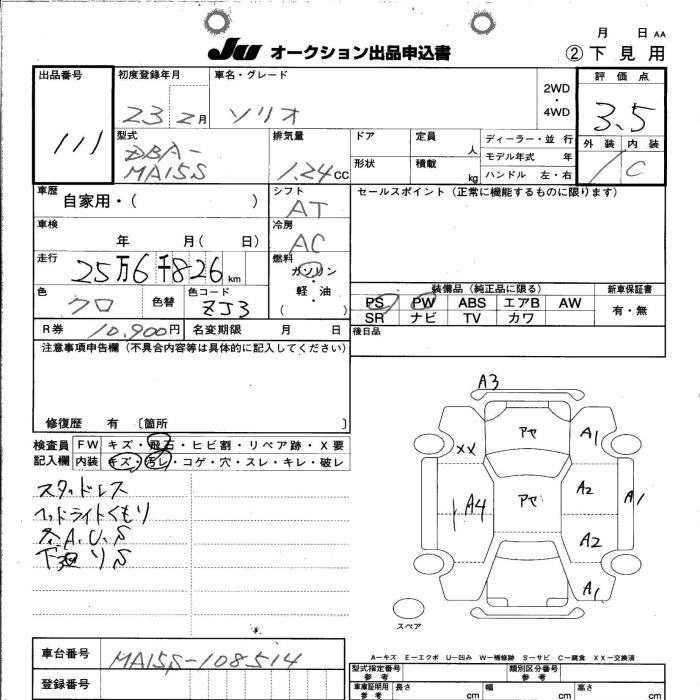 月 日 AA
JU オークション出品申込書
② 下 見 用
出品番号
111
初度登録年月
23 2月
車名・グレード
ソリオ
2WD
・
4WD
評 価 点
3.5
外 装 内 装
C
型式
DBA-
MA15S
排気量
1.24 CC
ドア
定員
人
形状
積載
kg
ディーラー・並 行
モデル年式 年
ハンドル 左・右
車歴
自家用・( )
シフト
AT
セールスポイント(正常に機能するものに限ります)
車検
年 月( 日)
冷房
AC
走行
25万6千826 km
燃料
ガソリン
・
軽 ・ 油
( )
色
クロ
色替
色コード
ZJ3
装備品(純正品に限る)
新車保証書
PS PW ABS エアB AW
SR ナビ TV カワ
有・無
R券
10,900円
名変期限 月 日
後日品
注意事項申告欄(不具合内容等は具体的に記入してください)
修復歴 有 〔箇所 〕
検査員
記入欄
FW キズ・飛石・ヒビ割・リペア跡・X要
内装 キズ・汚レ・コゲ・穴・スレ・キレ・破レ
スタッドレス
ヘッドライトくもり
各A.U.S
下廻りS
A3
アセ
A1
XX
A4
アセ
A2
A1
A2
A1
スペア
A-キズ E-エクボ U-凹み W-補修跡 S-サビ C-腐食 XX-交換済
車台番号
MA15S-108514
登録番号
型式指定番号
参 考
類別区分番号
参 考
車庫証明用
参 考
長さ
cm
幅
cm
高さ
cm